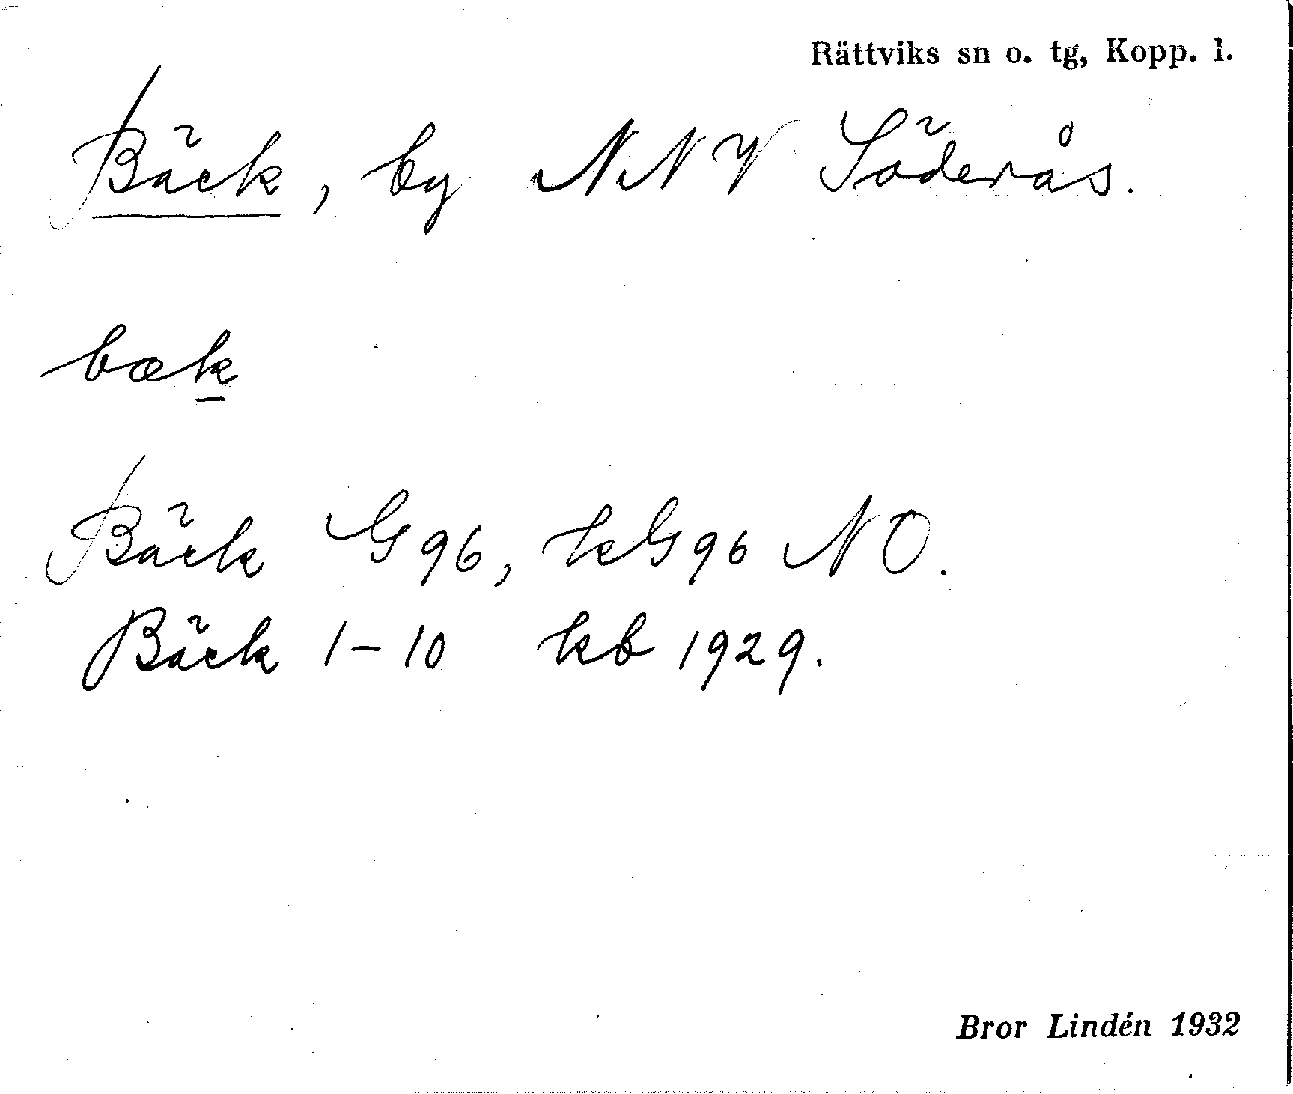 Rättviks sn o. tg, Kopp. l.
Bäck, by NNV Söderås.
bæk
Bäck G96, kG96 NO.
Bäck 1-10 kb 1929.
Bror Lindén 1932